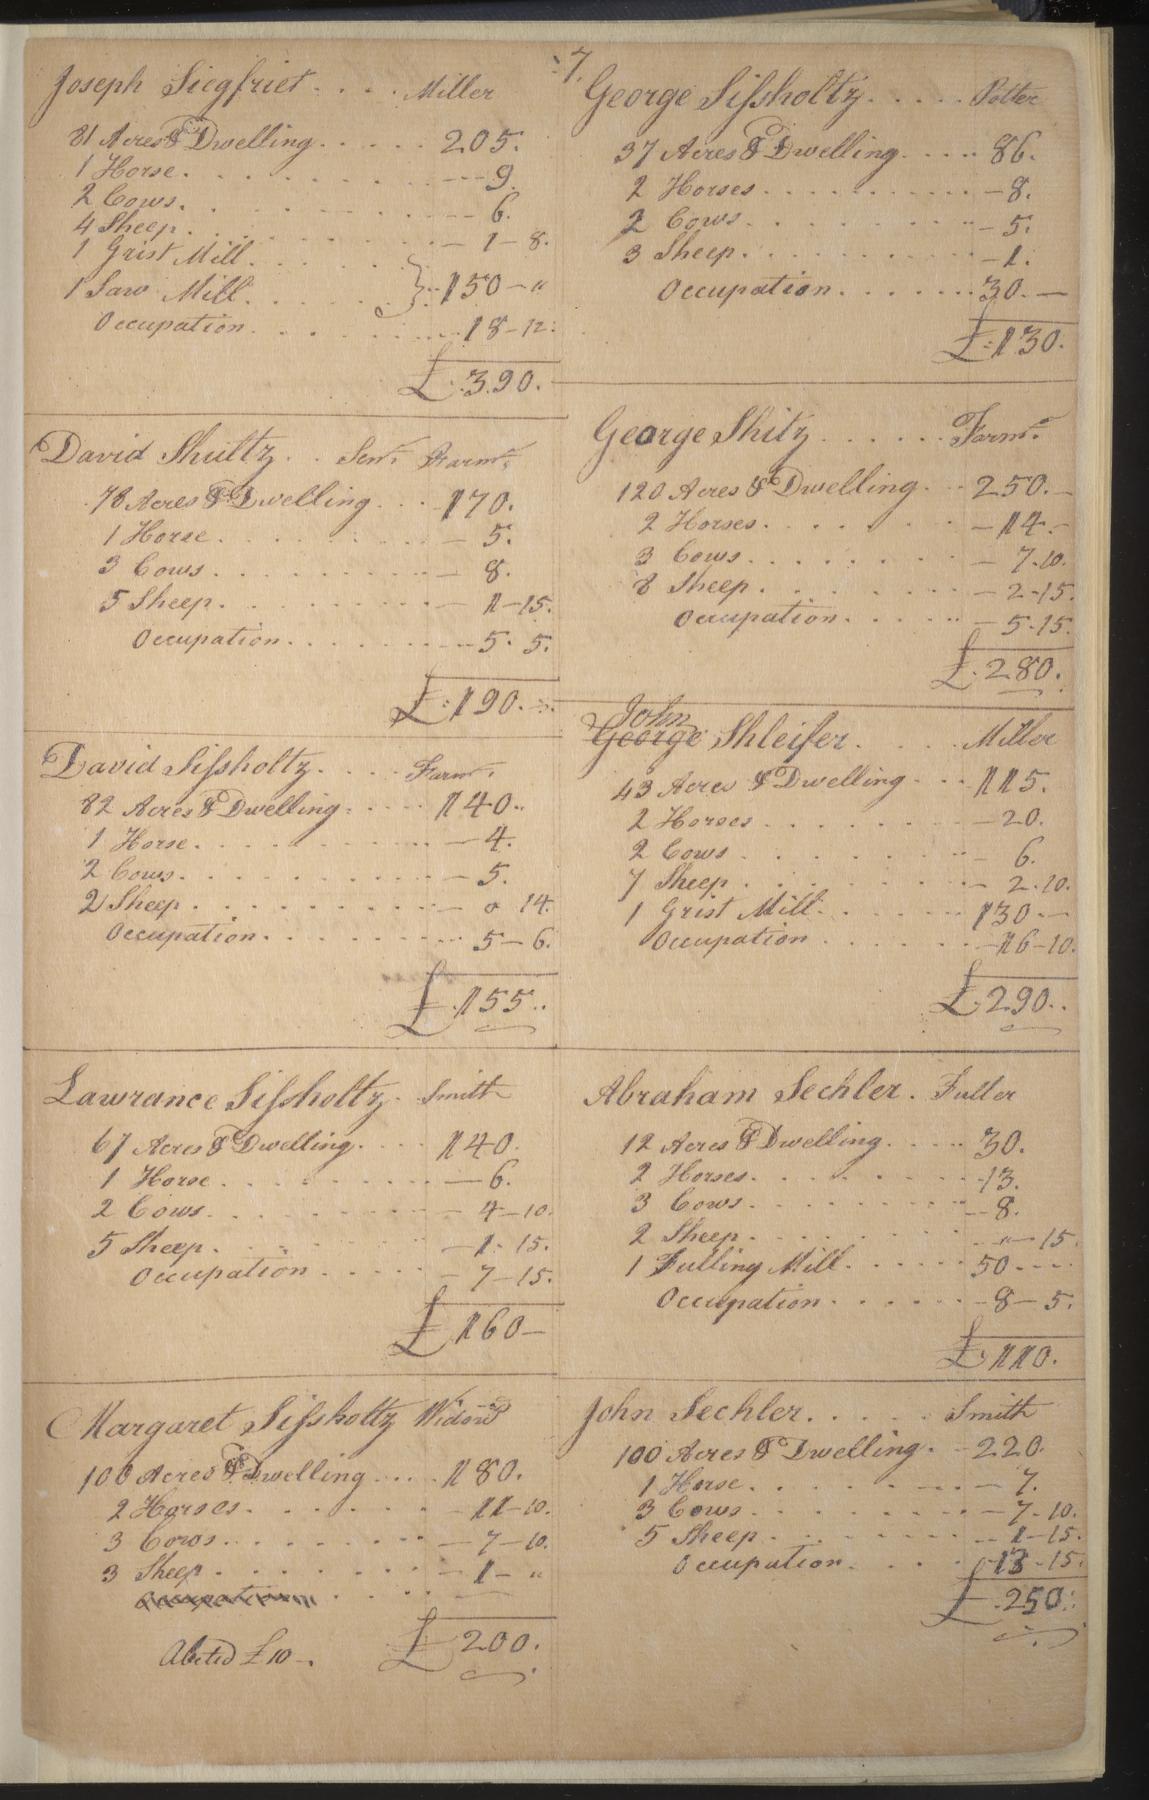 7.
Joseph Siegfriet . . . . Miller
81 Acres & Dwelling . . . . . 205.
1 Horse . . . . . . . . 9.
2 Cows. . . . . . . . 6.
4 Sheep . . . . . . . . — 1 – 8.
1 Grist Mill . . . . . .
1 Saw Mill . . . . . } 150 – "
Occupation . . . . . . 18 – 12.
£ . 390.
David Shultz . . Senr. Farmr.
78 Acres & Dwelling . . . 170.
1 Horse . . . . . . . . — 5.
3 Cows . . . . . . . . — 8.
5 Sheep . . . . . . . . — 1 – 15.
Occupation . . . . . . . 5. 5.
£ : 190. –
David Sissholtz . . . . Farmr.
82 Acres & Dwelling . . . . 140 ..
1 Horse . . . . . . . . — 4.
2 Cows. . . . . . . . — 5.
2 Sheep . . . . . . . . — 0 14.
Occupation . . . . . . . 5 – 6.
£ . 155 ..
Lawrance Sissholtz . Smith
67 Acres & Dwelling . . . . 140.
1 Horse . . . . . . . . — 6.
2 Cows . . . . . . . . — 4 – 10.
5 Sheep . . . . . . . . — 1 - 15.
Occupation . . . . . – 7 – 15.
£ 160 —
Margaret Sissholtz Widow
100 Acres & Dwelling . . . . 180.
2 Horses . . . . . . — 11 – 10.
3 Cows . . . . . . . . — 7 – 10.
3 Sheep . . . . . . . . — 1 – "
Occupation . . . . —
Abated £ 10 – . £ 200.
George Sissholtz . . . . . Potter
37 Acres & Dwelling . . . . 86.
2 Horses . . . . . . . . . – 8.
2 Cows . . . . . . . . – 5.
3 Sheep . . . . . . . . . – 1.
Occupation . . . . . . . 30. —
£ : 130.
George Shitz . . . . . . Farmr.
120 Acres & Dwelling . . . 250. –
2 Horses . . . . . . . — 14. –
3 Cows . . . . . . . . – 7. 10.
8 Sheep . . . . . . . . — 2 – 15.
Occupation . . . . . . – 5. 15.
£ . 280.
John
George Shleifer . . . . Miller
43 Acres & Dwelling . . . 115.
2 Horses . . . . . . . – 20.
2 Cows . . . . . . . . – 6.
7 Sheep . . . . . . . . – 2. 10.
1 Grist Mill . . . . . . 130 . —
Occupation . . . . . . – 16 – 10.
£ . 290 ..
Abraham Sechler . Fuller
12 Acres & Dwelling . . . . . 30.
2 Horses . . . . . . . . – 13.
3 Cows . . . . . . . . – 8.
2 Sheep . . . . . . . . . " – 15
1 Fulling Mill . . . . . . 50 . . . .
Occupation . . . . . . – 8 – 5.
£ . 110.
John Sechler . . . . . Smith
100 Acres & Dwelling . – 220.
1 Horse . . . . . . . . – 7.
3 Cows . . . . . . . . – 7 – 10.
5 Sheep . . . . . . . . – 1 – 15.
Occupation . . . . 13 – 15.
£ . 250 .